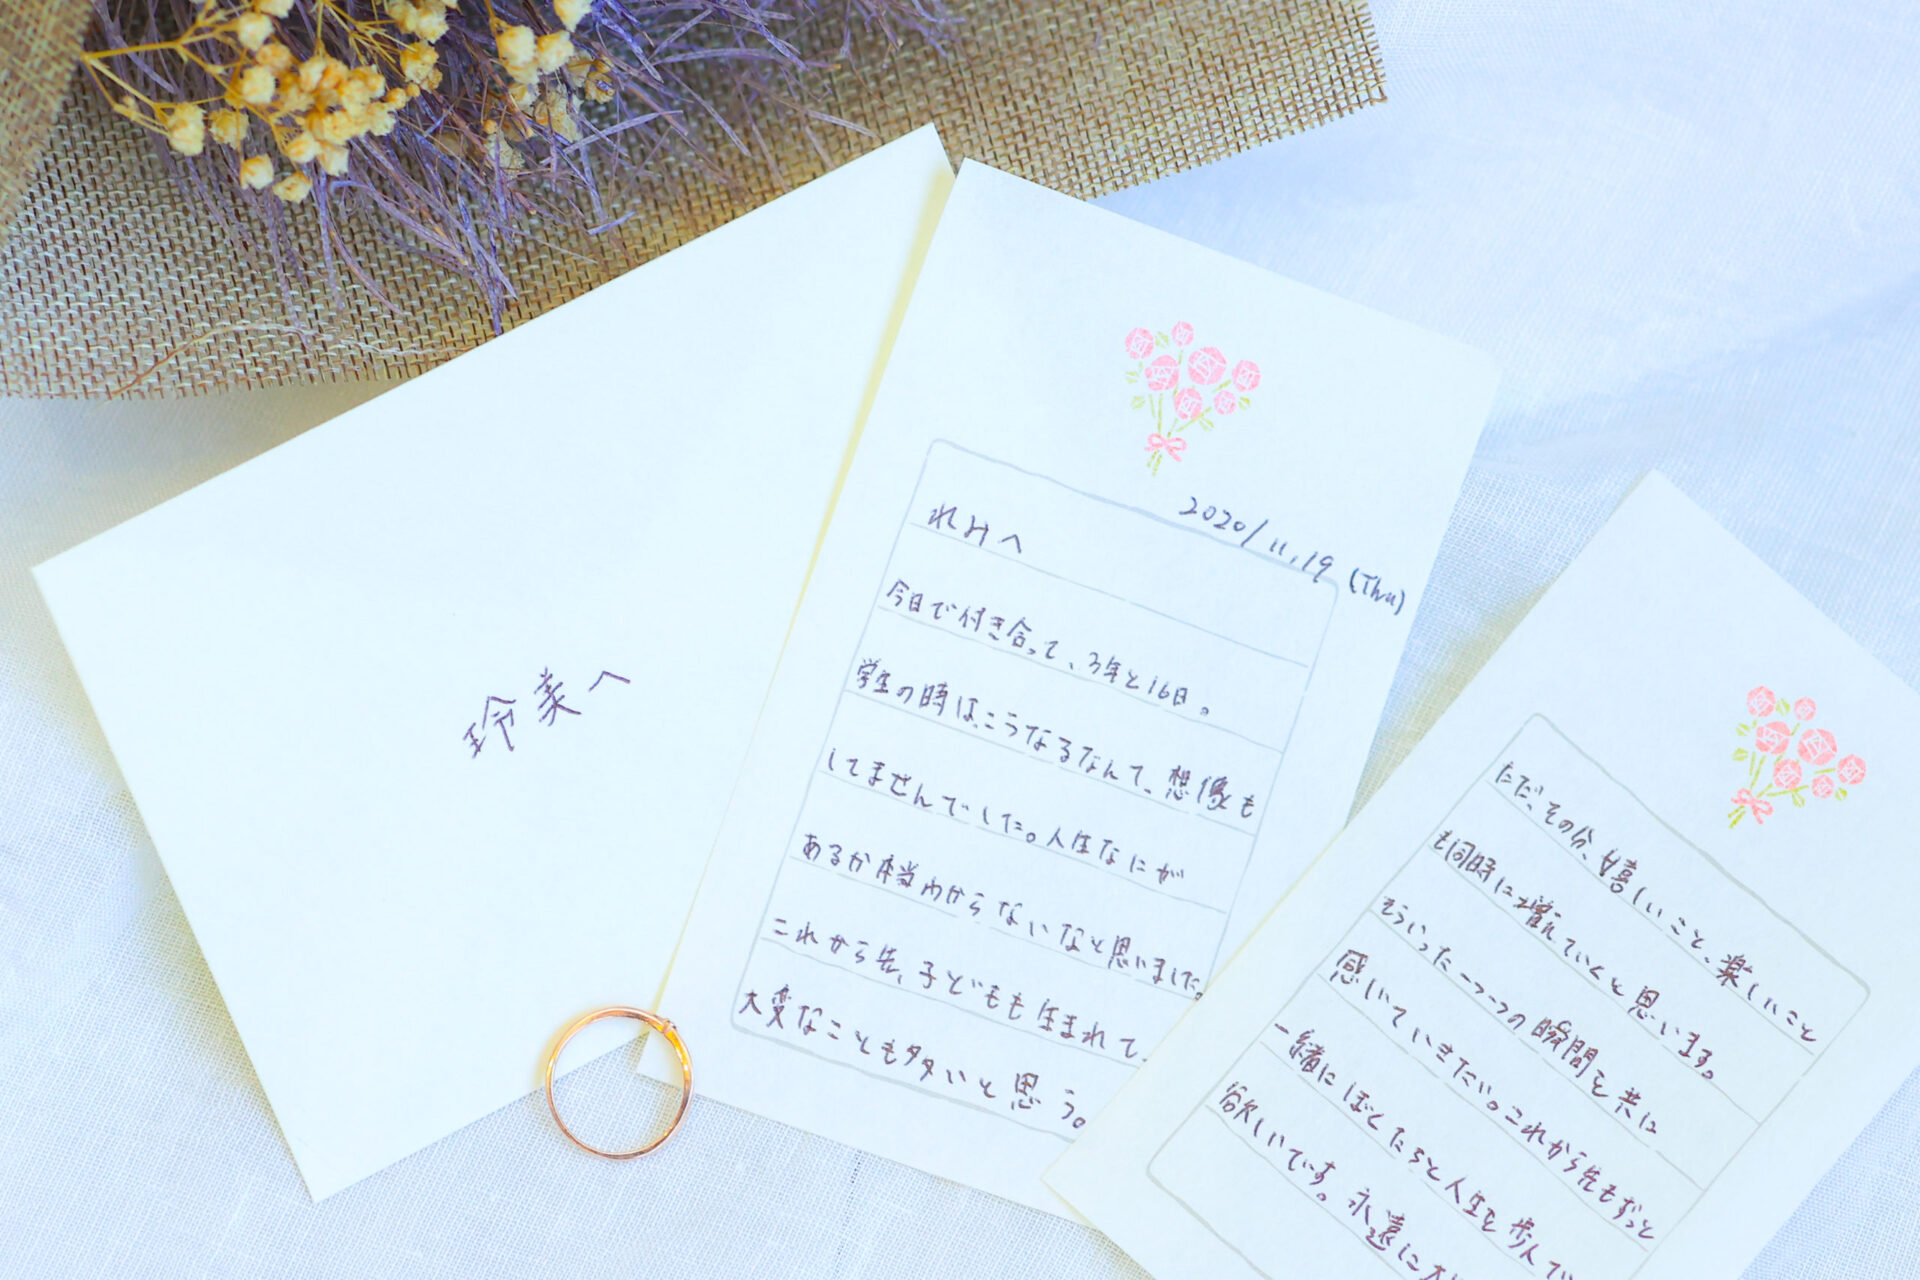 玲美へ
2020/11.19 (Thu)
れみへ
今日で付き合って、3年と16日。
学生の時は、こうなるなんて、想像も
してませんでした。人生なにが
あるか本当わからないなと思いました。
これから先、子どもも生まれて、
大変なことも多いと思う。
ただ、その分、嬉しいこと、楽しいこと
も同時に増えていくと思います。
そういった一つ一つの瞬間を共に
感じていきたい。これから先もずっと
一緒にぼくたちと人生を歩んで
欲しいです。永遠に